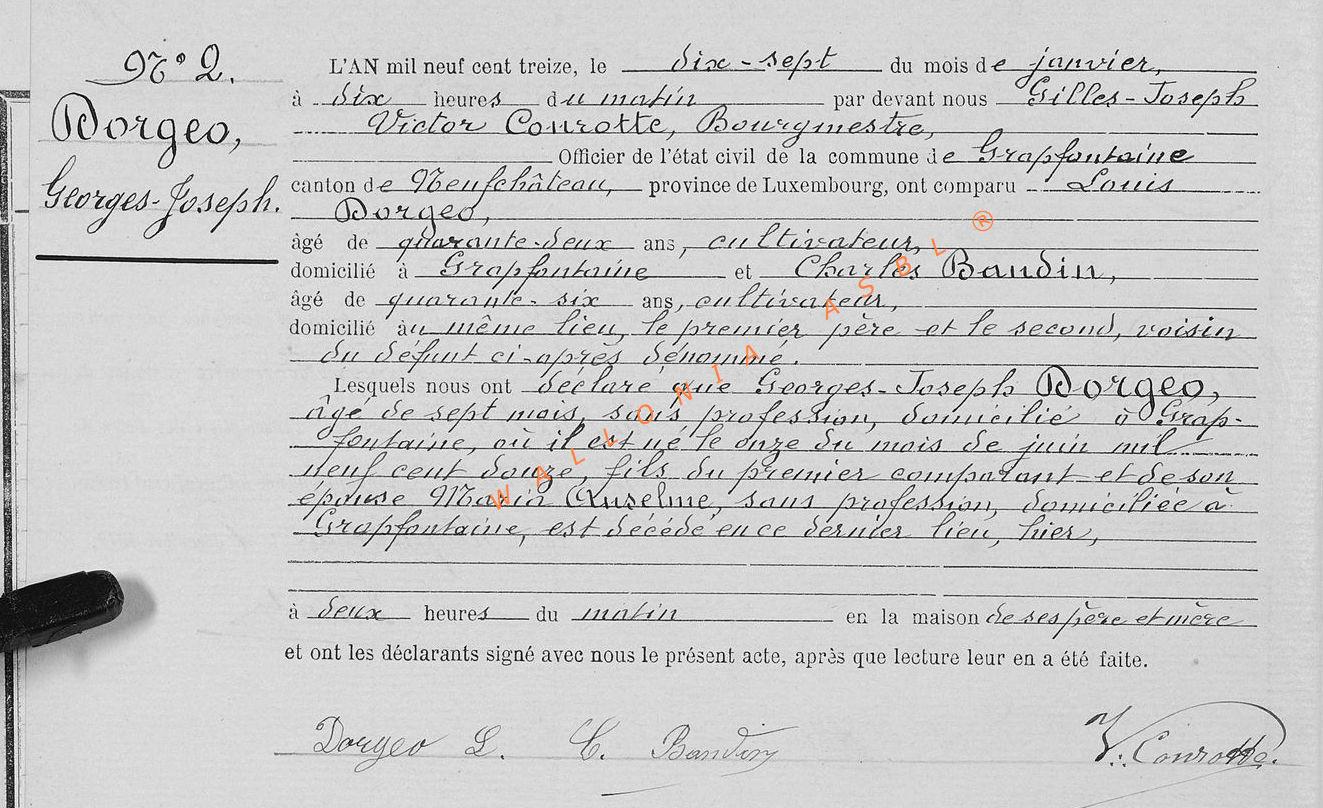 N° 2.
Dorgeo,
Georges-Joseph.
L'AN mil neuf cent treize, le dix-sept du mois de janvier,
à dix heures du matin par devant nous Gilles-Joseph
Victor Conrotte, Bourgmestre,
Officier de l'état civil de la commune de Grapfontaine
canton de Neufchâteau, province de Luxembourg, ont comparu Louis
Dorgeo,
âgé de quarante-deux ans, cultivateur,
domicilié à Grapfontaine et Charles Baudin,
âgé de quarante-six ans, cultivateur,
domicilié au même lieu, le premier père et le second, voisin
du défunt ci-après dénommé.
Lesquels nous ont déclaré que Georges-Joseph Dorgeo,
âgé de sept mois, sans profession, domicilié à Grap-
fontaine, où il est né le onze du mois de juin mil
neuf cent douze, fils du premier comparant et de son
épouse Maria Anselme, sans profession, domiciliée à
Grapfontaine, est décédé en ce dernier lieu, hier,
à deux heures du matin en la maison de ses père et mère
et ont les déclarants signé avec nous le présent acte, après que lecture leur en a été faite.
Dorgeo L. C. Baudin V. Conrotte.
WALLONIA ASBL ®